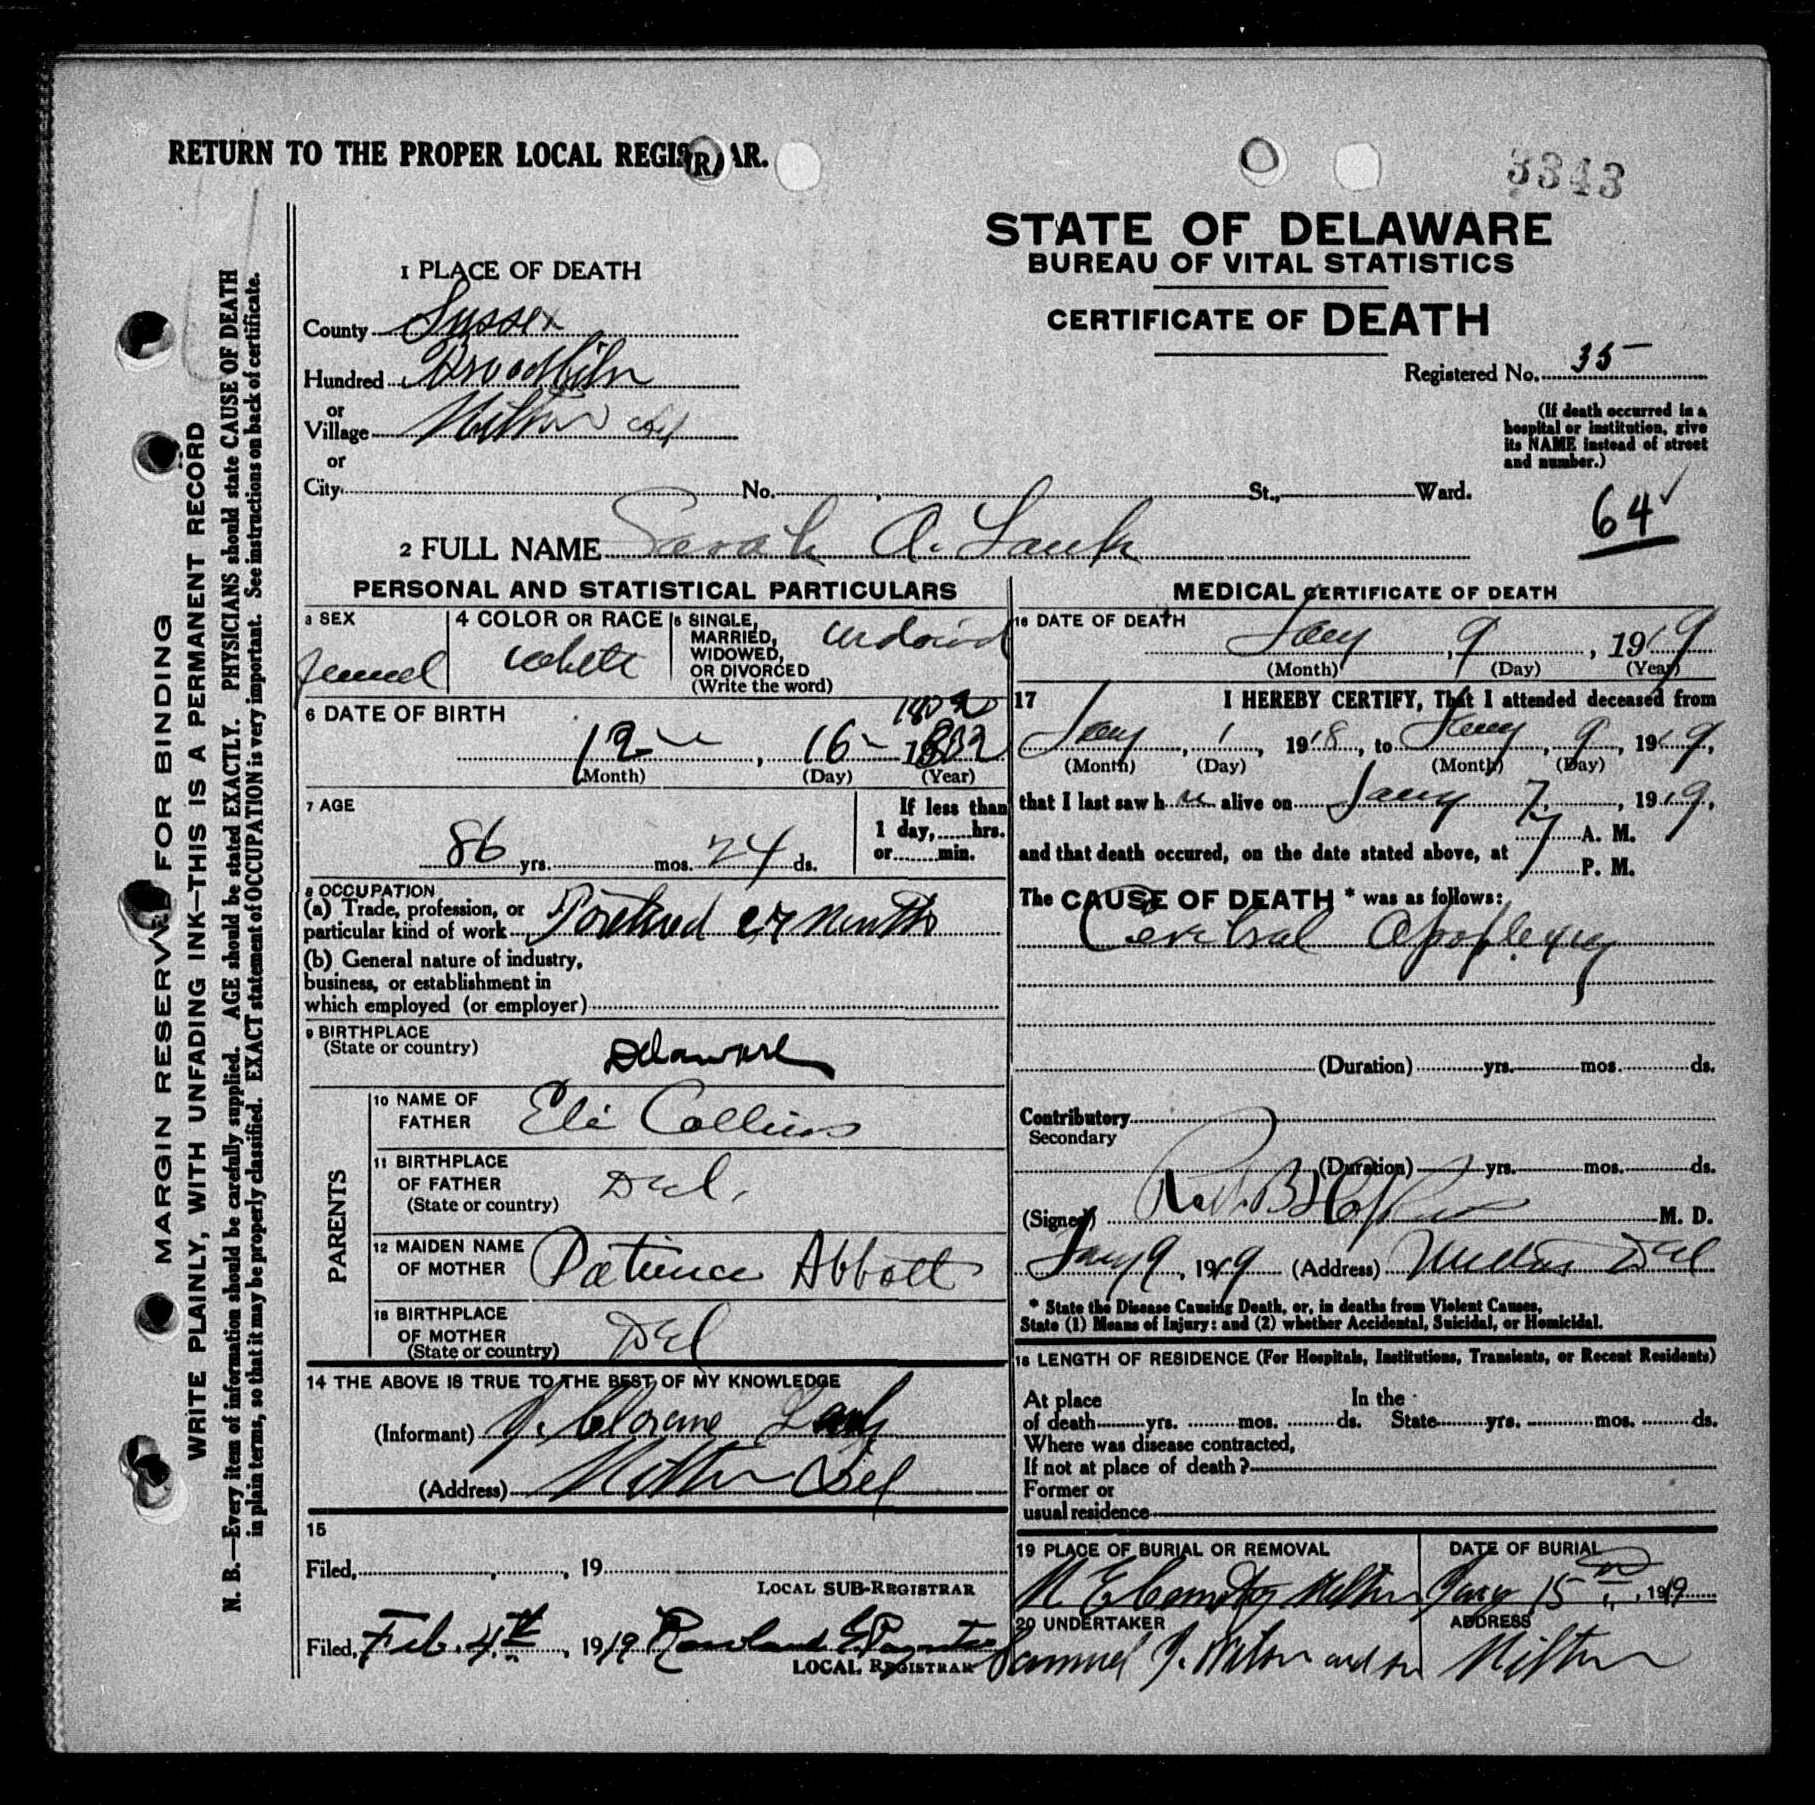 RETURN TO THE PROPER LOCAL REGISTRAR.
3343
STATE OF DELAWARE
BUREAU OF VITAL STATISTICS
CERTIFICATE OF DEATH
1 PLACE OF DEATH
County Sussex
Hundred Broadkiln
or
Village Milton Del
or
City No. St., Ward.
Registered No. 35
(If death occurred in a
hospital or institution, give
its NAME instead of street
and number.)
64 ✓
2 FULL NAME Sarah A. Lank
PERSONAL AND STATISTICAL PARTICULARS
3 SEX
4 COLOR OR RACE white
5 SINGLE,
MARRIED,
WIDOWED,
OR DIVORCED
(Write the word)
6 DATE OF BIRTH
12 16
(Month) (Day) (Year)
7 AGE
86 yrs. mos. 24 ds.
If less than
1 day, hrs.
or min.
8 OCCUPATION
(a) Trade, profession, or
particular kind of work
(b) General nature of industry,
business, or establishment in
which employed (or employer)
9 BIRTHPLACE
(State or country) Delaware
PARENTS
10 NAME OF
FATHER Eli Collins
11 BIRTHPLACE
OF FATHER
(State or country) Del.
12 MAIDEN NAME
OF MOTHER Patience Abbott
13 BIRTHPLACE
OF MOTHER
(State or country) Del
14 THE ABOVE IS TRUE TO THE BEST OF MY KNOWLEDGE
(Informant)
(Address) Milton Del
15
Filed, , 19
LOCAL SUB-REGISTRAR
Filed, Feb. 4th, 1919
LOCAL REGISTRAR
MEDICAL CERTIFICATE OF DEATH
16 DATE OF DEATH
Jany, 9, 1919
(Month) (Day) (Year)
17 I HEREBY CERTIFY, That I attended deceased from
Jany, 1, 1918, to Jany, 9, 1919,
(Month) (Day) (Month) (Day)
that I last saw h alive on Jany 7, 1919,
and that death occured, on the date stated above, at 7 A. M.
P. M.
The CAUSE OF DEATH * was as follows:
Cerebral Apoplexy
(Duration) yrs. mos. ds.
Contributory
Secondary
(Duration) yrs. mos. ds.
(Signed) M. D.
Jany 9, 1919 (Address) Milton Del
* State the Disease Causing Death, or, in deaths from Violent Causes,
State (1) Means of Injury: and (2) whether Accidental, Suicidal, or Homicidal.
18 LENGTH OF RESIDENCE (For Hospitals, Institutions, Transients, or Recent Residents)
At place In the
of death yrs. mos. ds. State yrs. mos. ds.
Where was disease contracted,
If not at place of death?
Former or
usual residence
19 PLACE OF BURIAL OR REMOVAL
M. E. Cemetery Milton
DATE OF BURIAL
15 , 1919
20 UNDERTAKER
Samuel J. Wilson and Son
ADDRESS
Milton
MARGIN RESERVED FOR BINDING
WRITE PLAINLY, WITH UNFADING INK—THIS IS A PERMANENT RECORD
N. B.—Every item of information should be carefully supplied. AGE should be stated EXACTLY. PHYSICIANS should state CAUSE OF DEATH
in plain terms, so that it may be properly classified. EXACT statement of OCCUPATION is very important. See instructions on back of certificate.